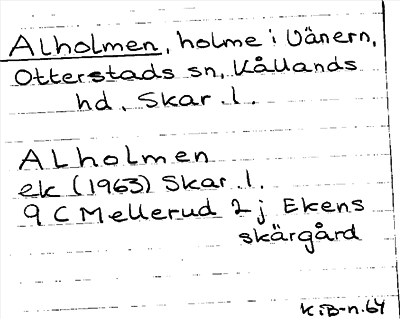 Alholmen, holme i Vänern,
Otterstads sn, Kållands
hd, Skar. l.
Alholmen
ek (1963) Skar. l.
9 C Mellerud 2 j Ekens
skärgård
KiB-n. 64